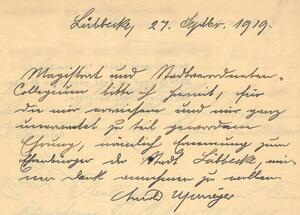 Lübbecke, 27. Septbr. 1919.
Magistrat und Stadtverordneten-
Collegium bitte ich hiermit, für
die mir erwiesene und mir ganz
unerwartet zu teil gewordene
Ehrung, nämlich Ernennung zum
Ehrenbürger der Stadt Lübbecke, mei-
nen Dank annehmen zu wollen.